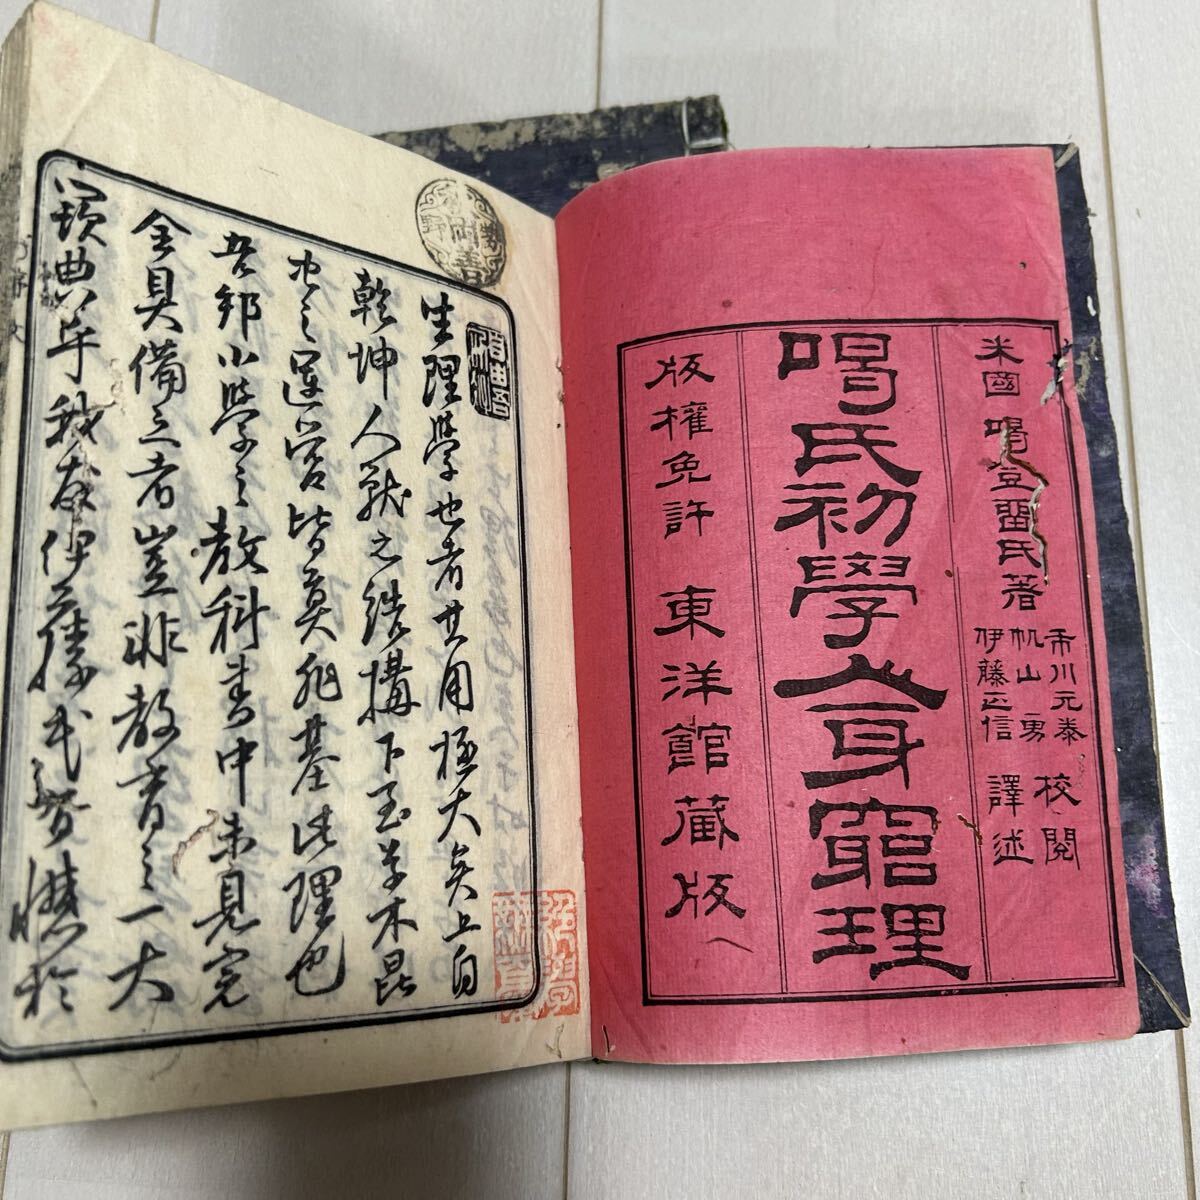 米國 喝登闘氏著
市川元泰 校閲
帆山勇
伊藤正信 譯述
喝氏初學人身窮理
版權免許 東洋館藏版
生理學也者其用極大矣上自
乾坤人獣之結構下至草木昆
虫之運営皆莫非基此理也
吾邦小學之教科書中未見完
全具備之者豈非教育之一大
闕典乎我友伊藤氏